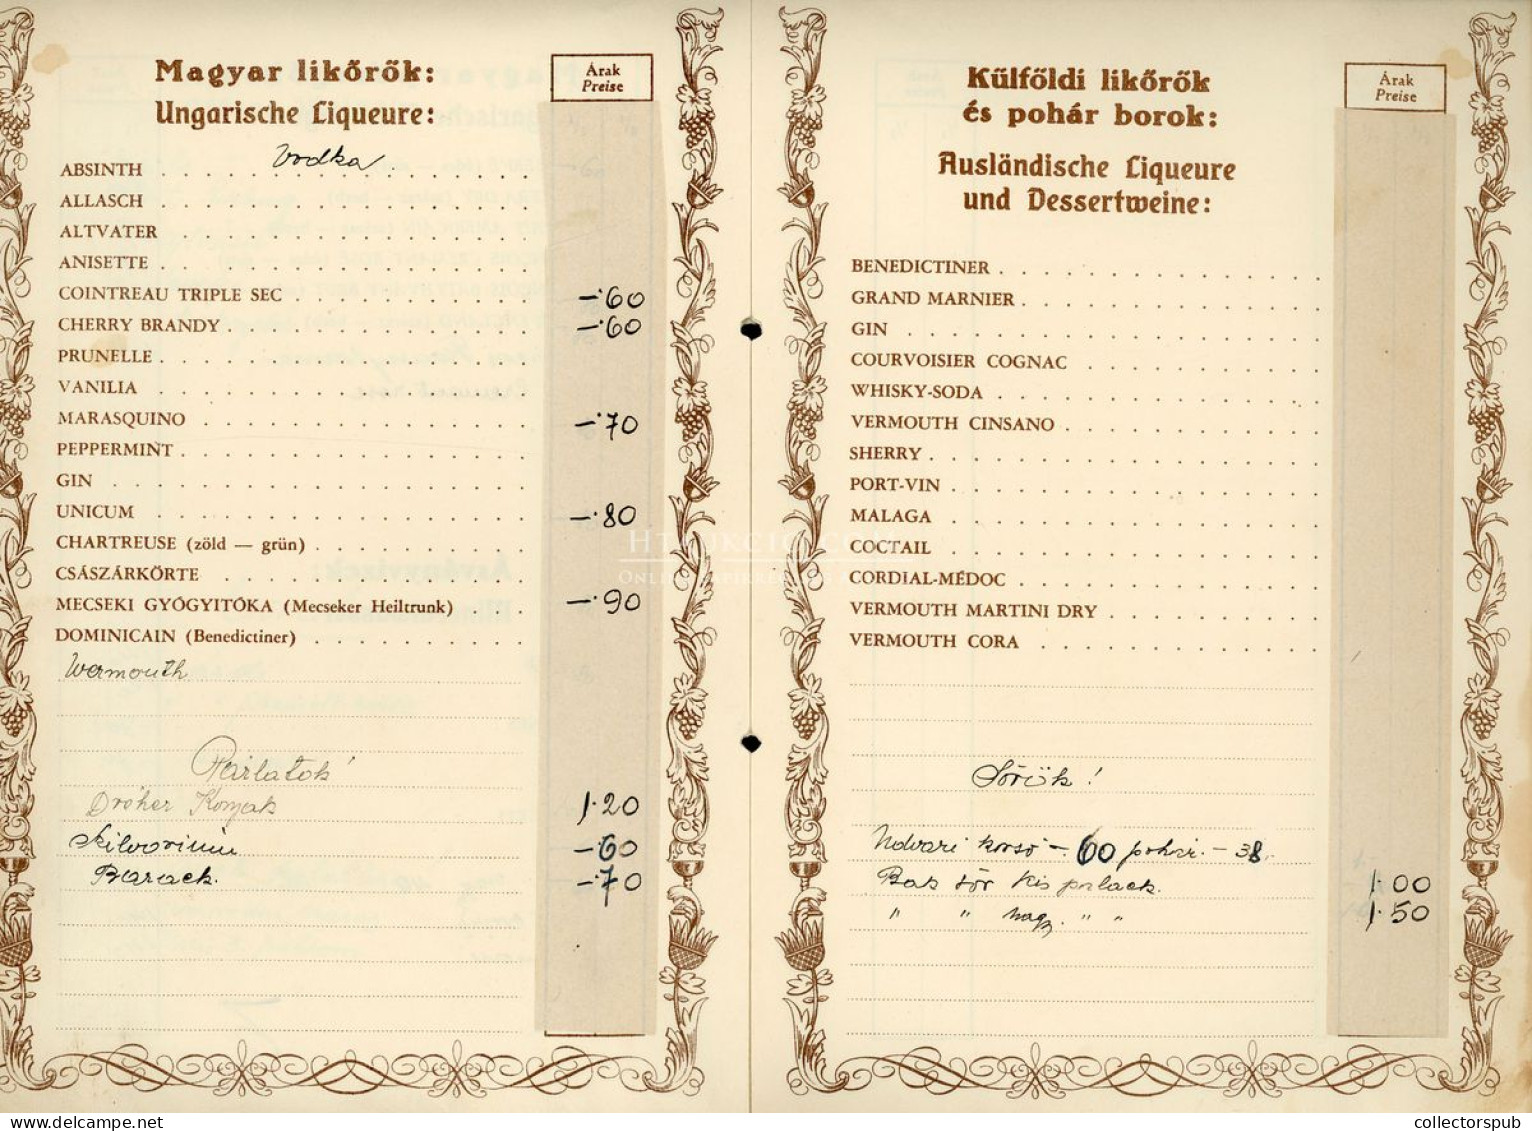 Magyar likőrök:
Ungarische Liqueure:
Árak
Preise
Vodka
ABSINTH
ALLASCH
ALTVATER
ANISETTE
COINTREAU TRIPLE SEC -·60
CHERRY BRANDY -·60
PRUNELLE
VANILIA
MARASQUINO -·70
PEPPERMINT
GIN
UNICUM -·80
CHARTREUSE (zöld — grün)
CSÁSZÁRKÖRTE
MECSEKI GYÓGYITÓKA (Mecseker Heiltrunk) -·90
DOMINICAIN (Benedictiner)
Wermouth
Párlatok!
Dréher Konyak 1·20
Szilvorium -·60
Barack. -·70
Külföldi likőrök
és pohár borok:
Ausländische Liqueure
und Dessertweine:
Árak
Preise
BENEDICTINER
GRAND MARNIER
GIN
COURVOISIER COGNAC
WHISKY-SODA
VERMOUTH CINSANO
SHERRY
PORT-VIN
MALAGA
COCTAIL
CORDIAL-MÉDOC
VERMOUTH MARTINI DRY
VERMOUTH CORA
Sörök!
Udvari korsó -·60 pohár. -38.
Bak sör kis palack. 1·00
" " nagy. " " 1·50
http://hu.delcampe.net
collectorspub